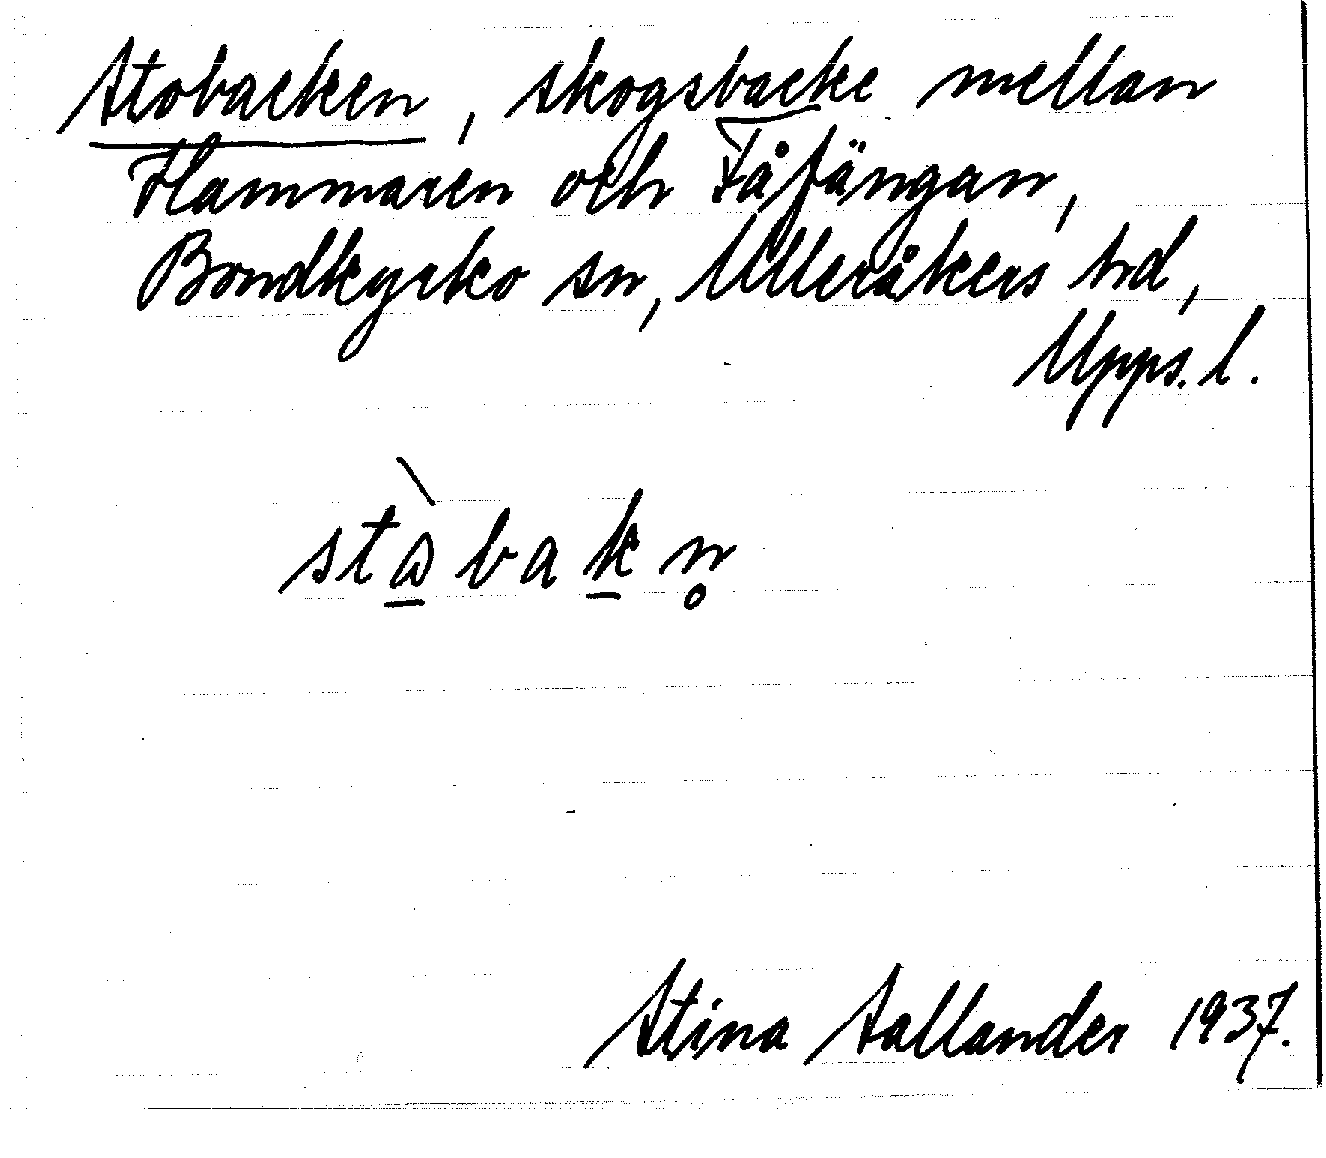 Stobacken, skogsbacke mellan
Hammaren och Fåfängan,
Bondkyrko sn, Ulleråkers hd,
Upps. l.
stὼbakn̥
Stina Sallander 1937.